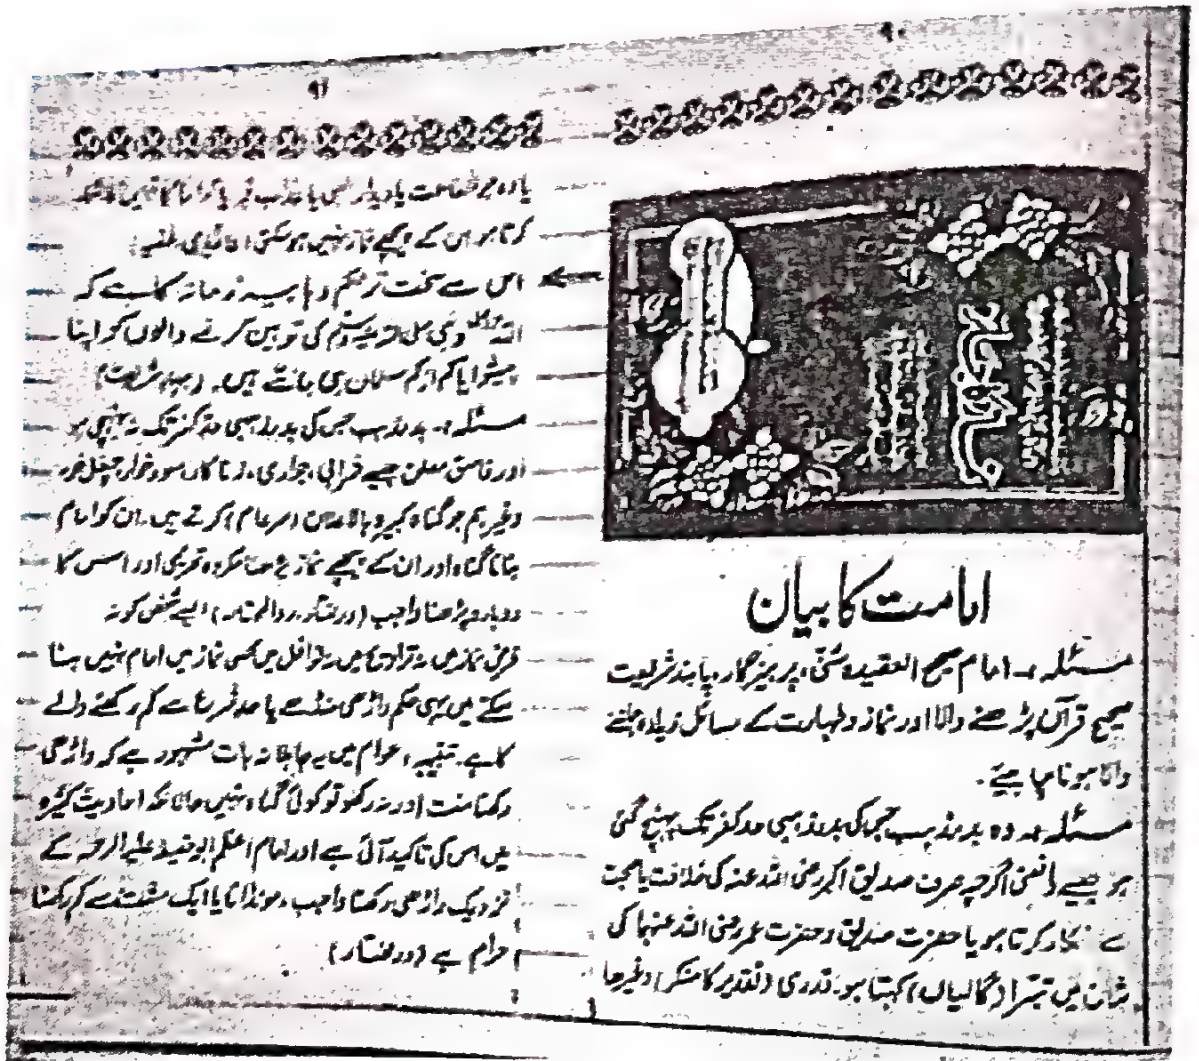 امامت کا بیان
مسئلہ:۔ امام صحیح العقیدہ سنی، پرہیزگار، پابند شریعت
صحیح قرآن پڑھنے والا اور نماز و طہارت کے مسائل زیادہ جاننے
والا ہونا چاہیئے۔
مسئلہ:۔ وہ بدمذہب جس کی بدمذہبی حد کفر تک پہنچ گئی
ہو جیسے رافضی اگرچہ صرف صدیق اکبر رضی اللہ عنہ کی خلافت یا صحبت
سے انکار کرتا ہو یا حضرت صدیق و حضرت عمر رضی اللہ عنہما کی
شان میں تبرا (گالیاں) کہتا ہو۔ قدری (تقدیر کا منکر) وغیرہا
۹۷
یا وہ جو شفاعت یا دیدار الٰہی یا عذاب قبر یا کراماً کاتبین کا
کرتا ہو ان کے پیچھے نماز نہیں ہو سکتی
اس سے سخت تر حکم وہابیہ زمانہ کا ہے کہ
اللہ و نبی صلی اللہ علیہ وسلم کی توہین کرنے والوں کو اپنا
پیشوا یا کم از کم مسلمان ہی جانتے ہیں۔ (بہار شریعت)
مسئلہ:۔ بدمذہب جس کی بدمذہبی حد کفر تک نہ پہنچی ہو
اور فاسق معلن جیسے شرابی، جواری، زنا کار، سود خوار، چغل خور
وغیرہم جو گناہ کبیرہ بالاعلان (سرعام) کرتے ہیں۔ ان کو امام
بنانا گناہ اور ان کے پیچھے نماز پڑھنا مکروہ تحریمی اور اس کا
دوبارہ پڑھنا واجب (درمختار، ردالمحتار) ایسے شخص کو نہ
فرض نماز میں نہ تراویح میں نہ نوافل میں کسی نماز میں امام نہیں بنا
سکتے ہیں یہی حکم داڑھی منڈے یا حد شرع سے کم رکھنے والے
کا ہے۔ تنبیہ: عوام میں یہ جاہلانہ بات مشہور ہے کہ داڑھی
رکھنا سنت اور نہ رکھو تو کوئی گناہ نہیں حالانکہ احادیث کثیرہ
میں اس کی تاکید آئی ہے اور امام اعظم ابو حنیفہ علیہ الرحمہ کے
نزدیک داڑھی رکھنا واجب، منڈانا یا ایک مشت سے کم رکھنا
حرام ہے (درمختار)